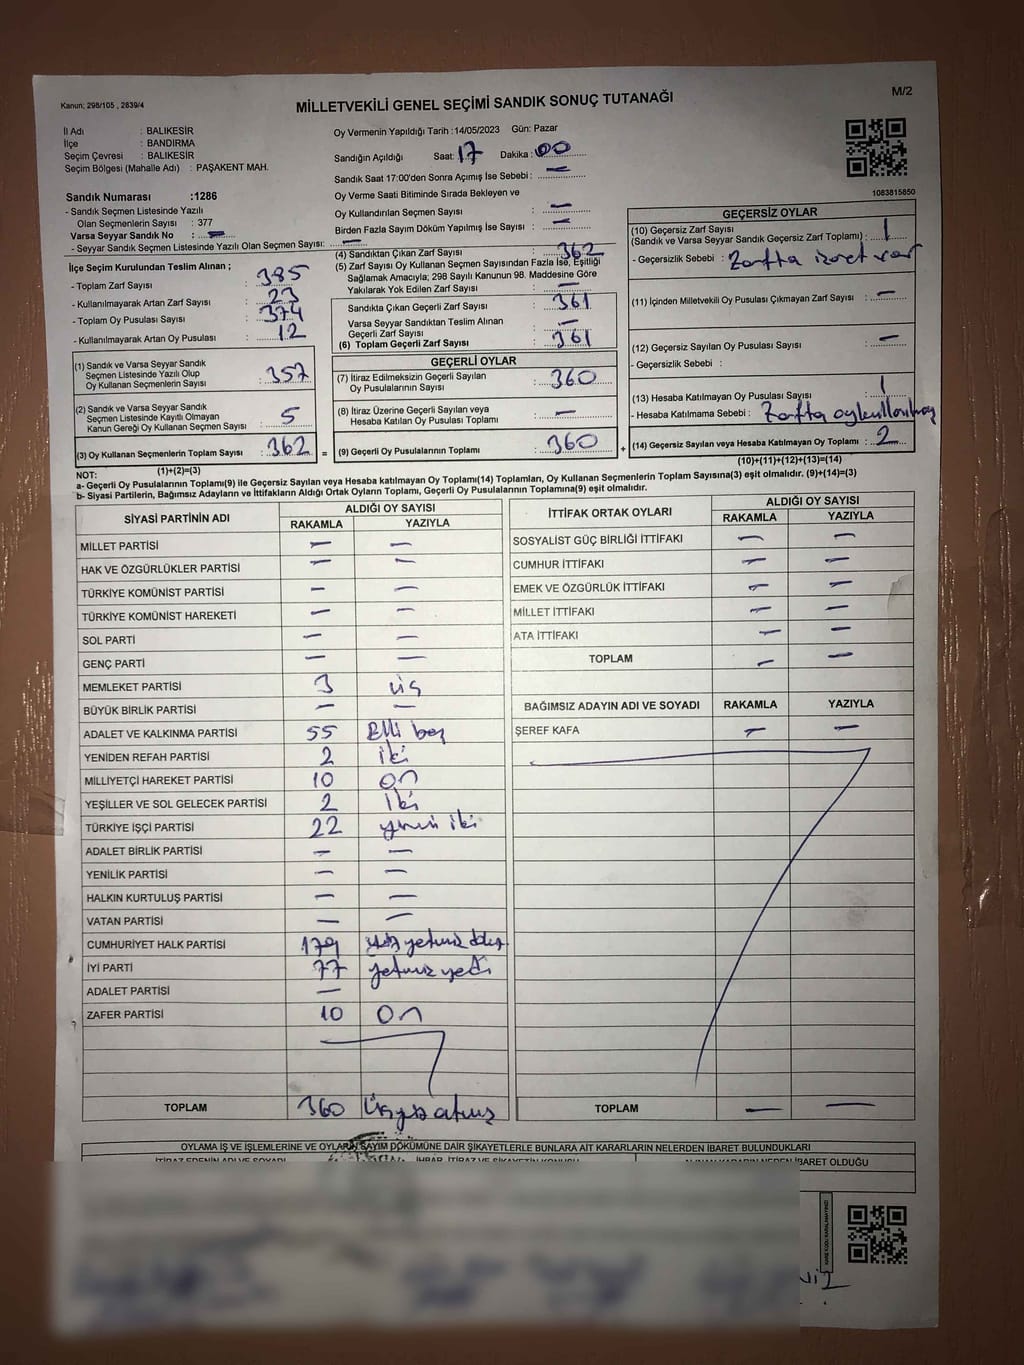 Kanun; 298/105 , 2839/4
MİLLETVEKİLİ GENEL SEÇİMİ SANDIK SONUÇ TUTANAĞI
M/2
İl Adı : BALIKESİR
İlçe : BANDIRMA
Seçim Çevresi : BALIKESİR
Seçim Bölgesi (Mahalle Adı) : PAŞAKENT MAH.
Oy Vermenin Yapıldığı Tarih :14/05/2023 Gün: Pazar
Sandığın Açıldığı Saat: 17 Dakika : 00
Sandık Saat 17:00'den Sonra Açımış İse Sebebi : —
Oy Verme Saati Bitiminde Sırada Bekleyen ve
Oy Kullandırılan Seçmen Sayısı : —
Birden Fazla Sayım Döküm Yapılmış İse Sayısı : —
1083815850
Sandık Numarası :1286
- Sandık Seçmen Listesinde Yazılı
Olan Seçmenlerin Sayısı : 377
Varsa Seyyar Sandık No : —
- Seyyar Sandık Seçmen Listesinde Yazılı Olan Seçmen Sayısı: —
İlçe Seçim Kurulundan Teslim Alınan ;
- Toplam Zarf Sayısı : 385
- Kullanılmayarak Artan Zarf Sayısı : 23
- Toplam Oy Pusulası Sayısı : 374
- Kullanılmayarak Artan Oy Pusulası : 12
(1) Sandık ve Varsa Seyyar Sandık
Seçmen Listesinde Yazılı Olup
Oy Kullanan Seçmenlerin Sayısı : 357
(2) Sandık ve Varsa Seyyar Sandık
Seçmen Listesinde Kayıtlı Olmayan
Kanun Gereği Oy Kullanan Seçmen Sayısı : 5
(3) Oy Kullanan Seçmenlerin Toplam Sayısı : 362 =
(1)+(2)=(3)
(4) Sandıktan Çıkan Zarf Sayısı : 362
(5) Zarf Sayısı Oy Kullanan Seçmen Sayısından Fazla İse, Eşitliği
Sağlamak Amacıyla; 298 Sayılı Kanunun 98. Maddesine Göre
Yakılarak Yok Edilen Zarf Sayısı : —
Sandıkta Çıkan Geçerli Zarf Sayısı : 361
Varsa Seyyar Sandıktan Teslim Alınan
Geçerli Zarf Sayısı : —
(6) Toplam Geçerli Zarf Sayısı : 361
GEÇERLİ OYLAR
(7) İtiraz Edilmeksizin Geçerli Sayılan
Oy Pusulalarının Sayısı : 360
(8) İtiraz Üzerine Geçerli Sayılan veya
Hesaba Katılan Oy Pusulası Toplamı : —
(9) Geçerli Oy Pusulalarının Toplamı : 360 +
GEÇERSİZ OYLAR
(10) Geçersiz Zarf Sayısı
(Sandık ve Varsa Seyyar Sandık Geçersiz Zarf Toplamı) : 1
- Geçersizlik Sebebi : Zarfta işaret var
(11) İçinden Milletvekili Oy Pusulası Çıkmayan Zarf Sayısı : —
(12) Geçersiz Sayılan Oy Pusulası Sayısı : —
- Geçersizlik Sebebi :
(13) Hesaba Katılmayan Oy Pusulası Sayısı : 1
- Hesaba Katılmama Sebebi : Zarfta
(14) Geçersiz Sayılan veya Hesaba Katılmayan Oy Toplamı : 2
(10)+(11)+(12)+(13)=(14)
NOT:
a- Geçerli Oy Pusulalarının Toplamı(9) ile Geçersiz Sayılan veya Hesaba Katılmayan Oy Toplamı(14) Toplamları, Oy Kullanan Seçmenlerin Toplam Sayısına(3) eşit olmalıdır. (9)+(14)=(3)
b- Siyasi Partilerin, Bağımsız Adayların ve İttifakların Aldığı Ortak Oyların Toplamı, Geçerli Oy Pusulalarının Toplamına(9) eşit olmalıdır.
SİYASİ PARTİNİN ADI ALDIĞI OY SAYISI
RAKAMLA YAZIYLA
MİLLET PARTİSİ — —
HAK VE ÖZGÜRLÜKLER PARTİSİ — —
TÜRKİYE KOMÜNİST PARTİSİ — —
TÜRKİYE KOMÜNİST HAREKETİ — —
SOL PARTİ — —
GENÇ PARTİ — —
MEMLEKET PARTİSİ 3 üç
BÜYÜK BİRLİK PARTİSİ — —
ADALET VE KALKINMA PARTİSİ 55 Elli beş
YENİDEN REFAH PARTİSİ 2 iki
MİLLİYETÇİ HAREKET PARTİSİ 10 on
YEŞİLLER VE SOL GELECEK PARTİSİ 2 iki
TÜRKİYE İŞÇİ PARTİSİ 22 yirmi iki
ADALET BİRLİK PARTİSİ — —
YENİLİK PARTİSİ — —
HALKIN KURTULUŞ PARTİSİ — —
VATAN PARTİSİ — —
CUMHURİYET HALK PARTİSİ 179 yüz yetmiş dokuz
İYİ PARTİ 77 yetmiş yedi
ADALET PARTİSİ —
ZAFER PARTİSİ 10 on
TOPLAM 360 Üçyüz atmış
İTTİFAK ORTAK OYLARI ALDIĞI OY SAYISI
RAKAMLA YAZIYLA
SOSYALİST GÜÇ BİRLİĞİ İTTİFAKI — —
CUMHUR İTTİFAKI — —
EMEK VE ÖZGÜRLÜK İTTİFAKI — —
MİLLET İTTİFAKI — —
ATA İTTİFAKI — —
TOPLAM — —
BAĞIMSIZ ADAYIN ADI VE SOYADI RAKAMLA YAZIYLA
ŞEREF KAFA — —
TOPLAM — —
OYLAMA İŞ VE İŞLEMLERİNE VE OYLARIN SAYIM DÖKÜMÜNE DAİR ŞİKAYETLERLE BUNLARA AİT KARARLARIN NELERDEN İBARET BULUNDUKLARI
İTİRAZ EDENİN ADI VE SOYADI İHBAR, İTİRAZ VE ŞİKAYETİN KONUSU ALINAN KARARIN NEDEN İBARET OLDUĞU